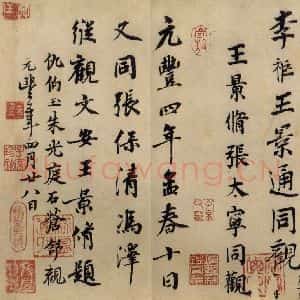 李祚王景通同觀
王景脩張太寧同觀
元豐四年孟春十日
又同張保清馮澤
縱觀文安王景脩題
仇伯玉朱光庭石蒼舒觀
元豐五年四月廿八日
shufawang.cn